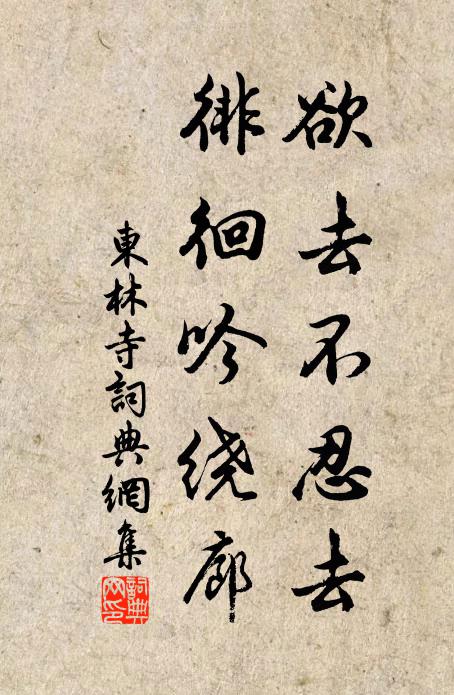 欲去不忍去
徘徊吟绕廊
東林寺詞典網集
詞典
网印